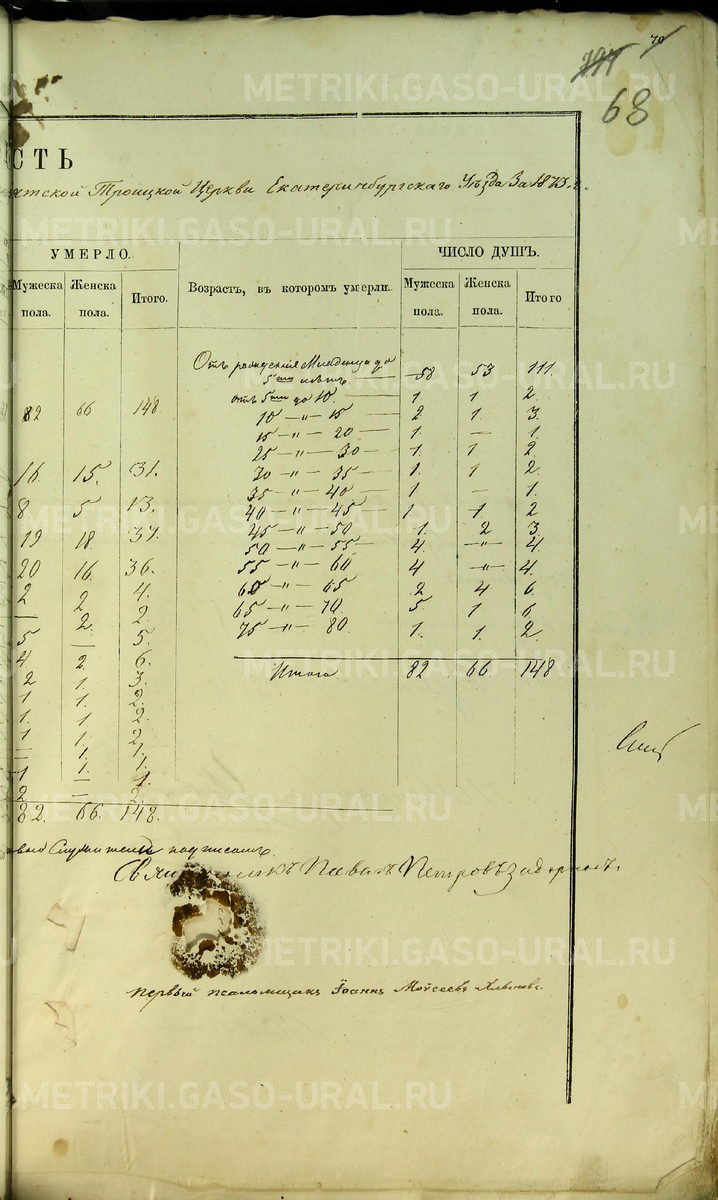 70
68
METRIKI.GASO-URAL.RU
СТЬ
Троицкой Церкви Екатеринбургскаго Уѣзда За
УМЕРЛО.
ЧИСЛО ДУШЪ.
Мужеска пола. Женска пола. Итого. Возрастъ, въ которомъ умерли. Мужеска пола. Женска пола. Итого
Отъ рожденія Младенца до
5ти лѣтъ. — 58 53 111.
отъ 5ти до 10. — 1 1 2.
82 66 148
10 — „ — 15 — 2 1 3.
15 — „ — 20 — 1. — 1.
25 — „ — 30 — 1. 1 2.
16. 15. 31.
30 — „ — 35 — 1. 1 2.
35 — „ — 40 — 1 — 1.
8 5 13.
40 — „ — 45 — 1 1 2
45 — „ — 50 1. 2 3.
19 18. 37.
50 — „ — 55 — 4. — „ — 4.
20 16. 36.
55 — „ — 60 4 — „ — 4.
2 2 4.
60 — „ — 65 2 4 6.
— 2. 2.
65 — „ — 70. 5 1 6.
5 — 5.
75 — „ — 80. 1. 1. 2.
4 2. 6.
Итого 82 66. 148
2 1. 3.
1 1. 2.
1. 1 2.
1 1. 2
— 1. 1.
1 1.
1 — 1.
2 — 2.
82. 66. 148.
подписалъ.
Священникъ Павелъ Петровъ
первый псаломщикъ Іоаннъ Моѵсеевъ